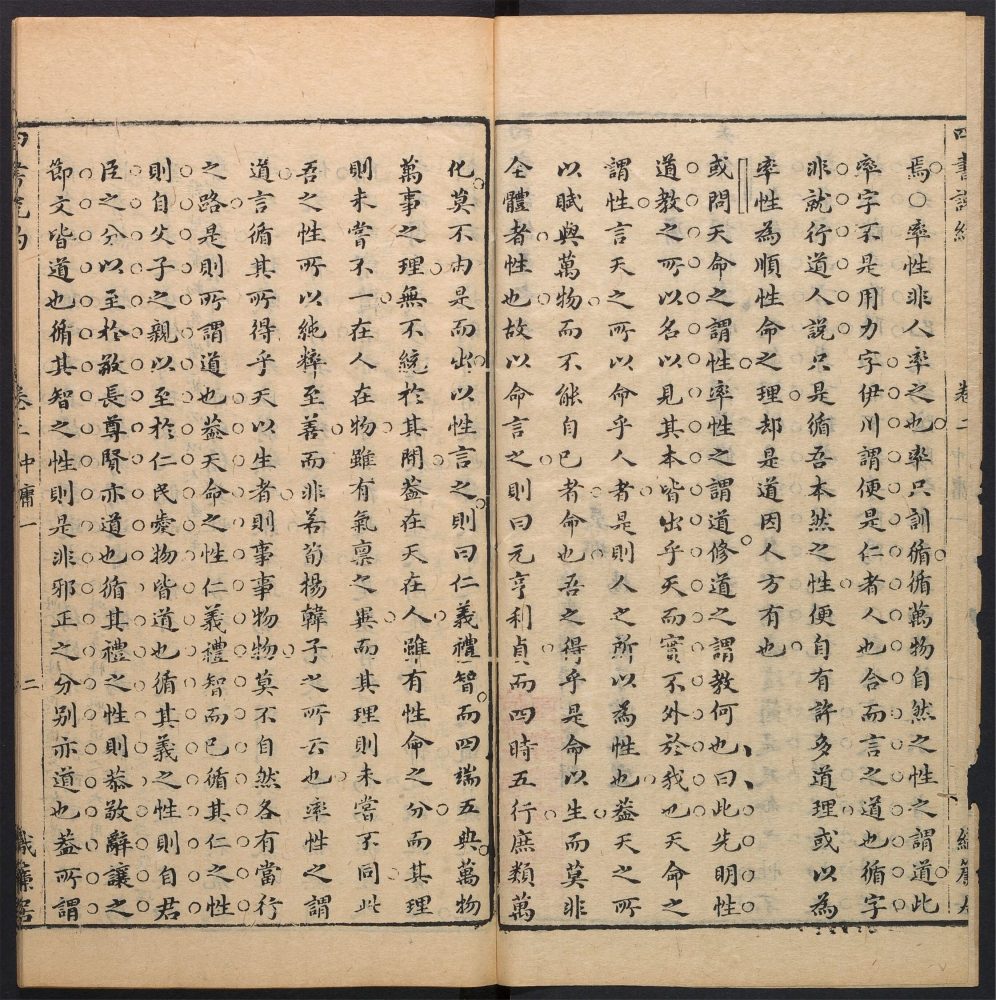 焉○率性非人率之也率只訓循循萬物自然之性之謂道此
率字不是用力字伊川謂便是仁者人也合而言之道也循字
非就行道人說只是循吾本然之性便自有許多道理或以為
率性為順性命之理却是道因人方有也
或問天命之謂性率性之謂道修道之謂教何也曰此先明性
道教之所以名以見其本皆出乎天而實不外於我也天命之
謂性言天之所以命乎人者是則人之所以為性也葢天之所
以賦與萬物而不能自已者命也吾之得乎是命以生而莫非
全體者性也故以命言之則曰元亨利貞而四時五行庶類萬
化莫不由是而出以性言之則曰仁義禮智而四端五典萬物
萬事之理無不統於其間葢在天在人雖有性命之分而其理
則未嘗不一在人在物雖有氣禀之異而其理則未嘗不同此
吾之性所以純粹至善而非若荀揚韓子之所云也率性之謂
道言循其所得乎天以生者則事事物物莫不自然各有當行
之路是則所謂道也葢天命之性仁義禮智而已循其仁之性
則自父子之親以至於仁民愛物皆道也循其義之性則自君
臣之分以至於敬長尊賢亦道也循其禮之性則恭敬辭讓之
節文皆道也循其智之性則是非邪正之分別亦道也葢所謂
卷二 中庸一 二